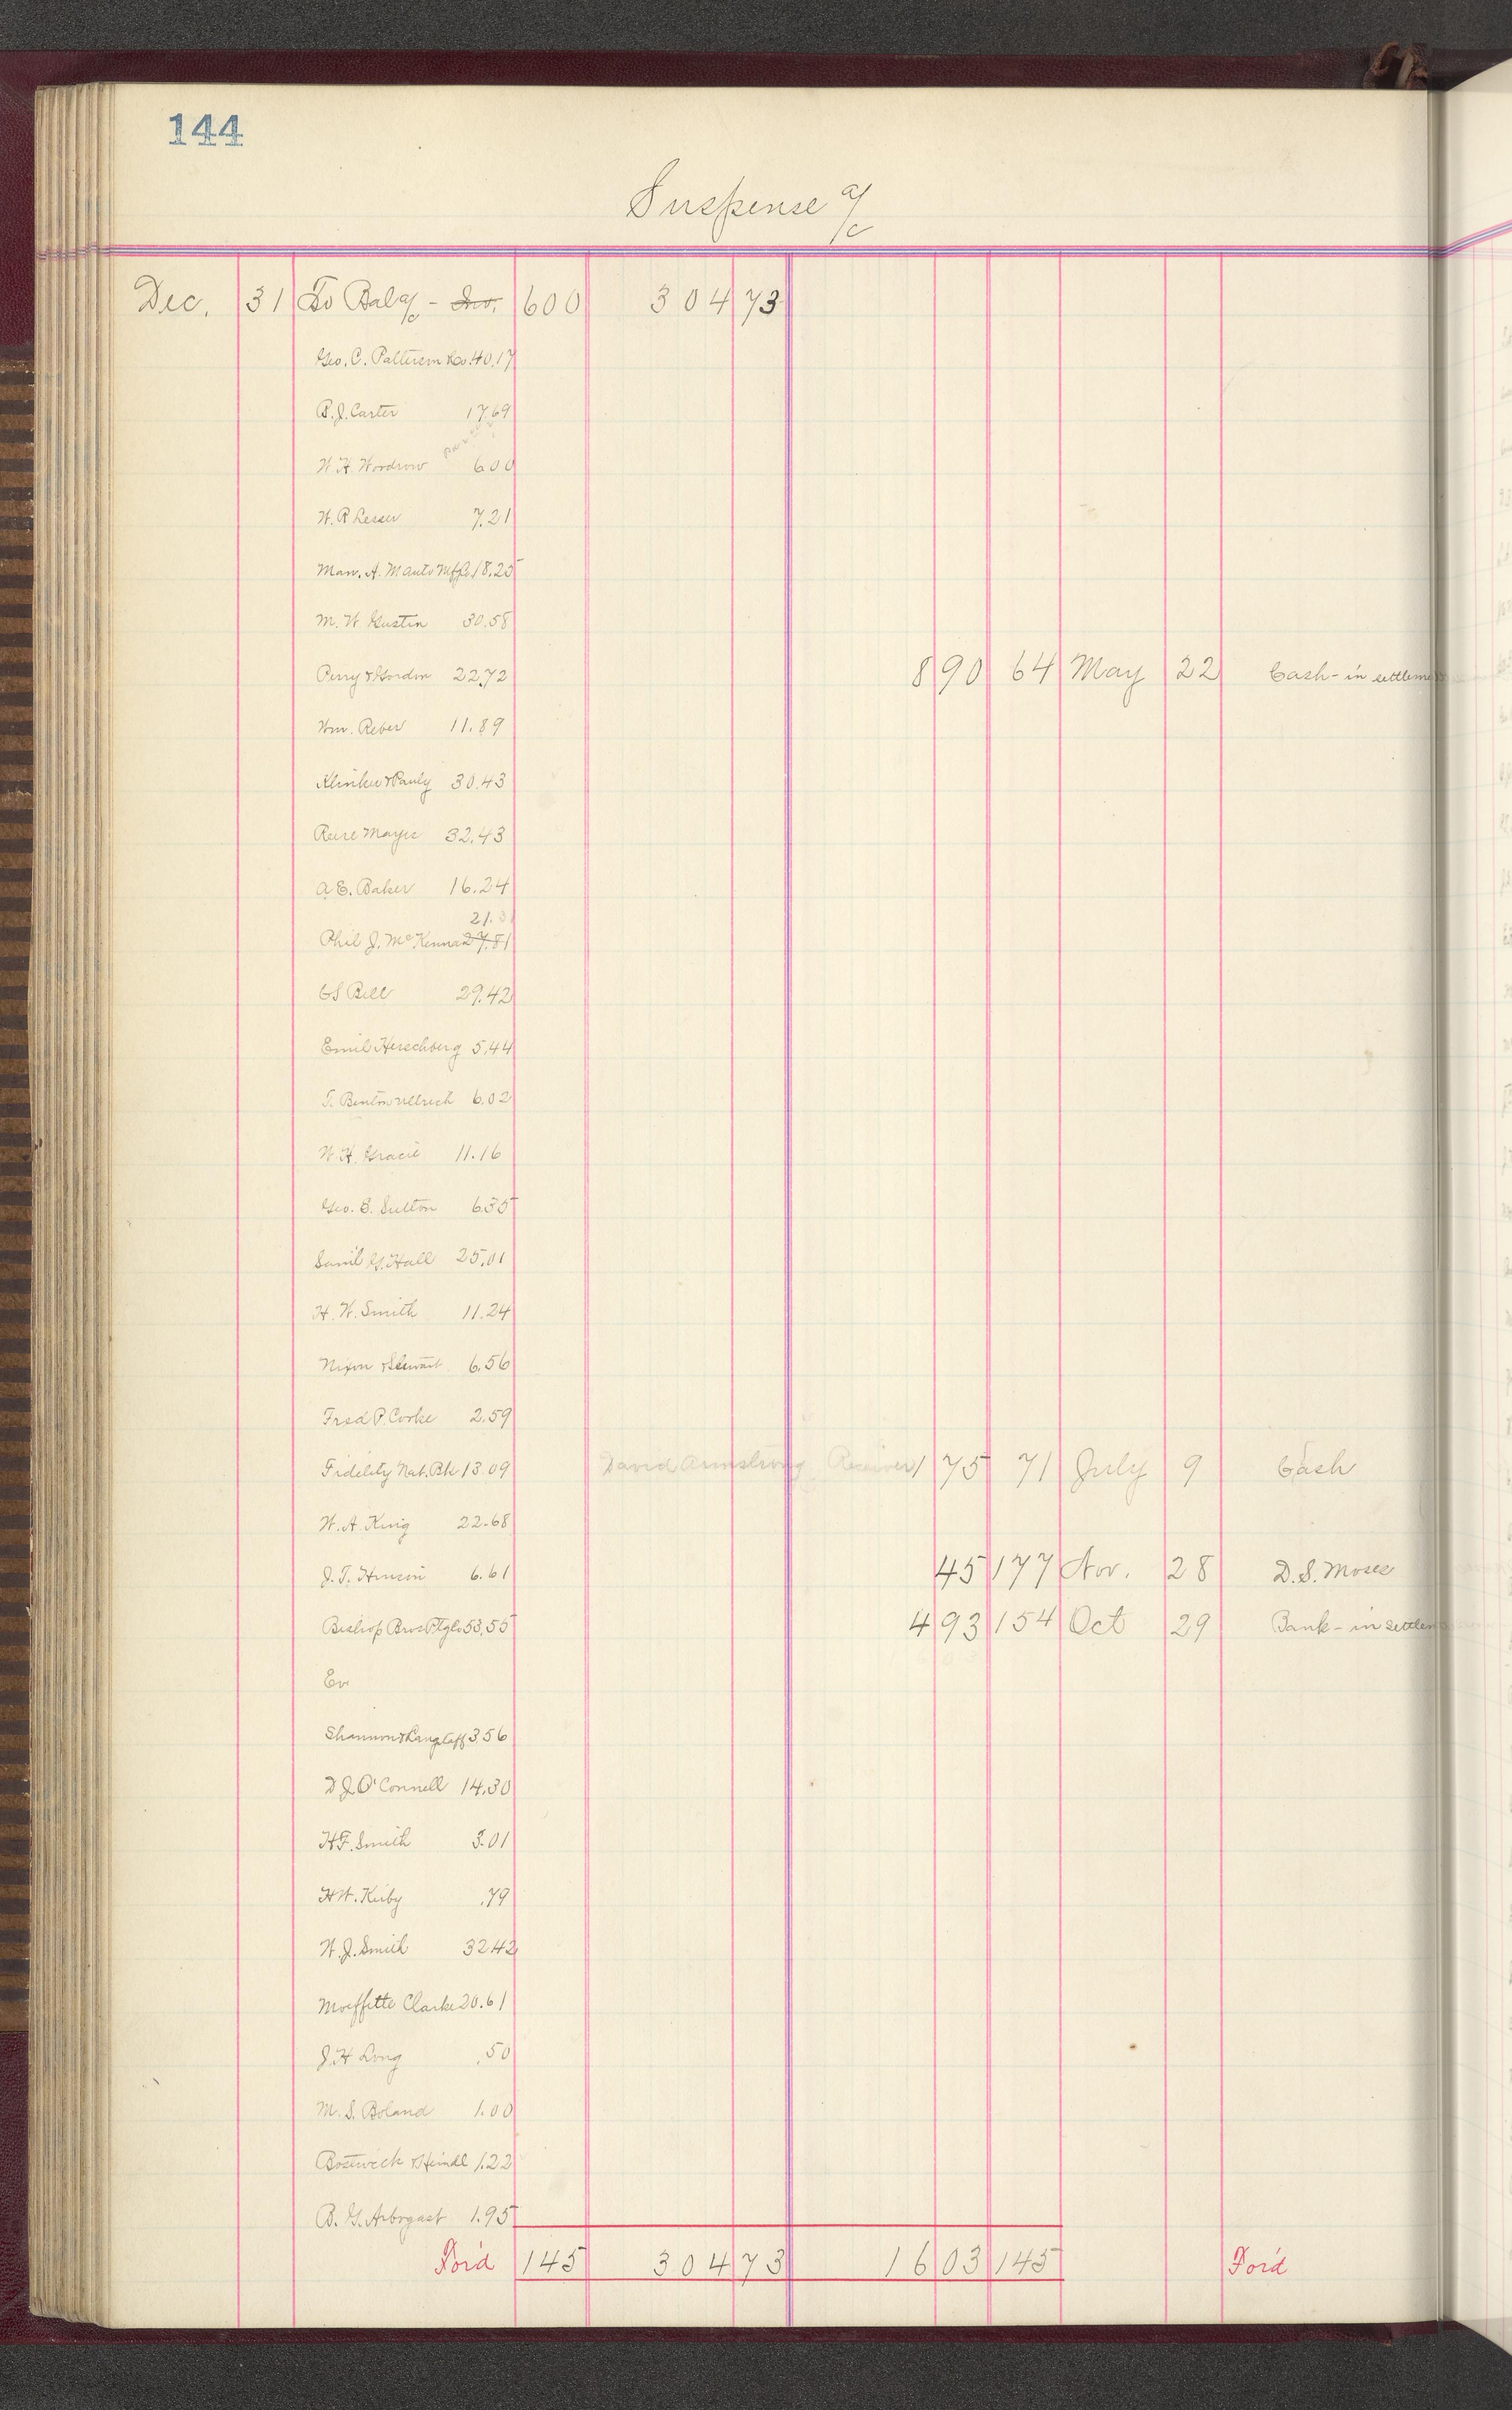 144
Suspense a/c
Dec. 31 To Bal a/c - Inv. 600 304 73
Geo. C. Patterson & Co. 40.17
B. J. Carter 17.69
W. H. Woodrow 6.00
W. R. Lesser 7.21
Man. A. Manto Mfg Co. 18.25
M. W. Gustin 30.58
Perry & Gordon 22.72 8 90 64 May 22 Cash - in settlem
Wm. Reber 11.89
Klinker & Pauly 30.43
Mayer 32.43
A. E. Baker 16.24
21.31
Phil J. McKenna 27.81
C S Bell 29.42
Emil Herschberg 5.44
T. Benton Ullrich 6.02
W. H. Gracie 11.16
Geo. B. Sutton 6.35
Saml G. Hall 25.01
H. W. Smith 11.24
Nixon & Stewart 6.56
Fred P. Cooke 2.59
Fidelity Nat. Bk 13.09 David Armstrong Receiver 1 75 71 July 9 Cash
W. A. King 22.68
J. T. Hinson 6.61 45 177 Nov. 28 D. S. Moses
Bishop Bros Ptg Co 53.55 4 93 154 Oct 29 Bank - in settlem
Ev
Shannon & Langstaff 3.56
D J O'Connell 14.30
H. F. Smith 3.01
H W. Kirby .79
W. J. Smith 32 42
Moffette Clarke 20.61
J. H Long .50
M. S. Boland 1.00
Bostwick & Heindl 1.22
B. G. Arbogast 1.95
For'd 145 304 73 16 03 145 For'd